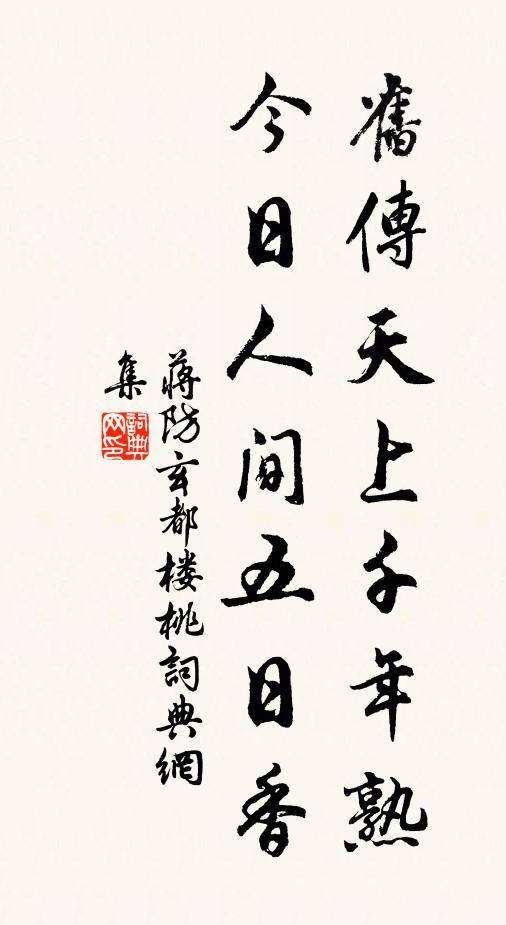 舊傳天上千年熟
今日人间五日香
蔣防玄都楼桃詞典網
集
詞典网印